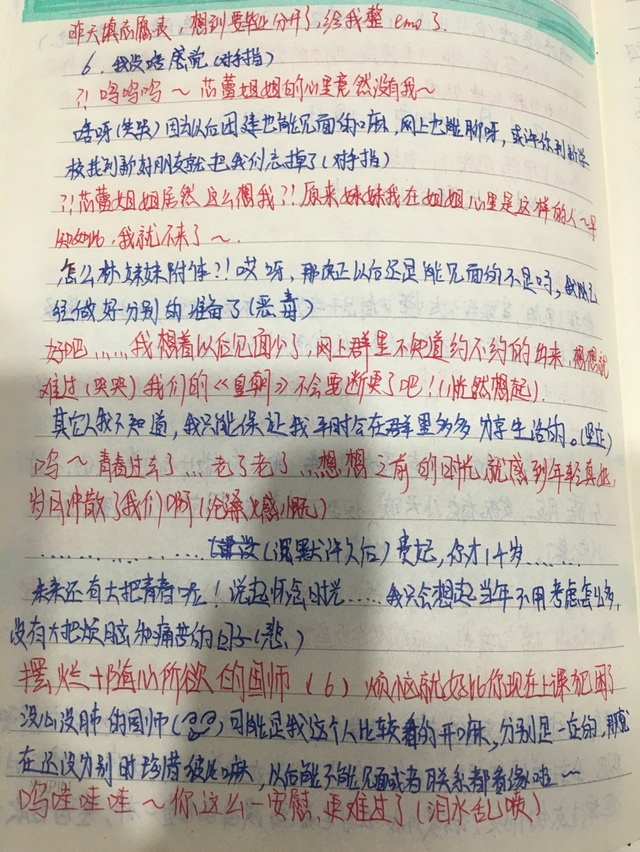 昨天填志愿表，想到要毕业分开了，给我整emo了.
6，我没啥感觉(对手指)
?! 呜呜呜～芯蕾姐姐的心里竟然没有我～
啥呀(笑哭)因为以后团建也能见面的嘛，网上也能聊呀，或许你到新学
校找到新好朋友就把我们忘掉了(对手指)
?!芯蕾姐姐居然这么想我?!原来妹妹我在姐姐心里是这样的人～早
知如此，我就不来了～.
怎么林妹妹附体?!哎呀，那反正以后还是能见面的不是吗，我已
经做好分别的准备了(恶毒)
好吧……我想着以后见面少了，网上群里不知道约不约的出来，想想就
难过(哭哭)我们的《皇朝》不会要断更了吧!(恍然想起).
其它人我不知道，我只能保证我平时会在群里多多分享生活的。(坚定)
呜～青春过去了…老了老了…想想之前的时光就感到年轻真好，
岁月冲散了我们啊(沧桑感慨)
………………(沉默许久后)贵妃，你才14岁……
未来还有大把青春呢！说起怀念时光……我只会想起当年不用考虑怎么多，
没有大把烦恼和痛苦的日子(悲)
摆烂+随心所欲的国师(6)烦恼就好比你现在上课犯困了
没心没肺的国师()可能是我这个人比较看的开嘛，分别是一定的，那就
在还没分别时珍惜彼此嘛，以后能不能见面或者联系都看缘啦～
呜哇哇哇～你这么一安慰，更难过了(泪水乱喷)